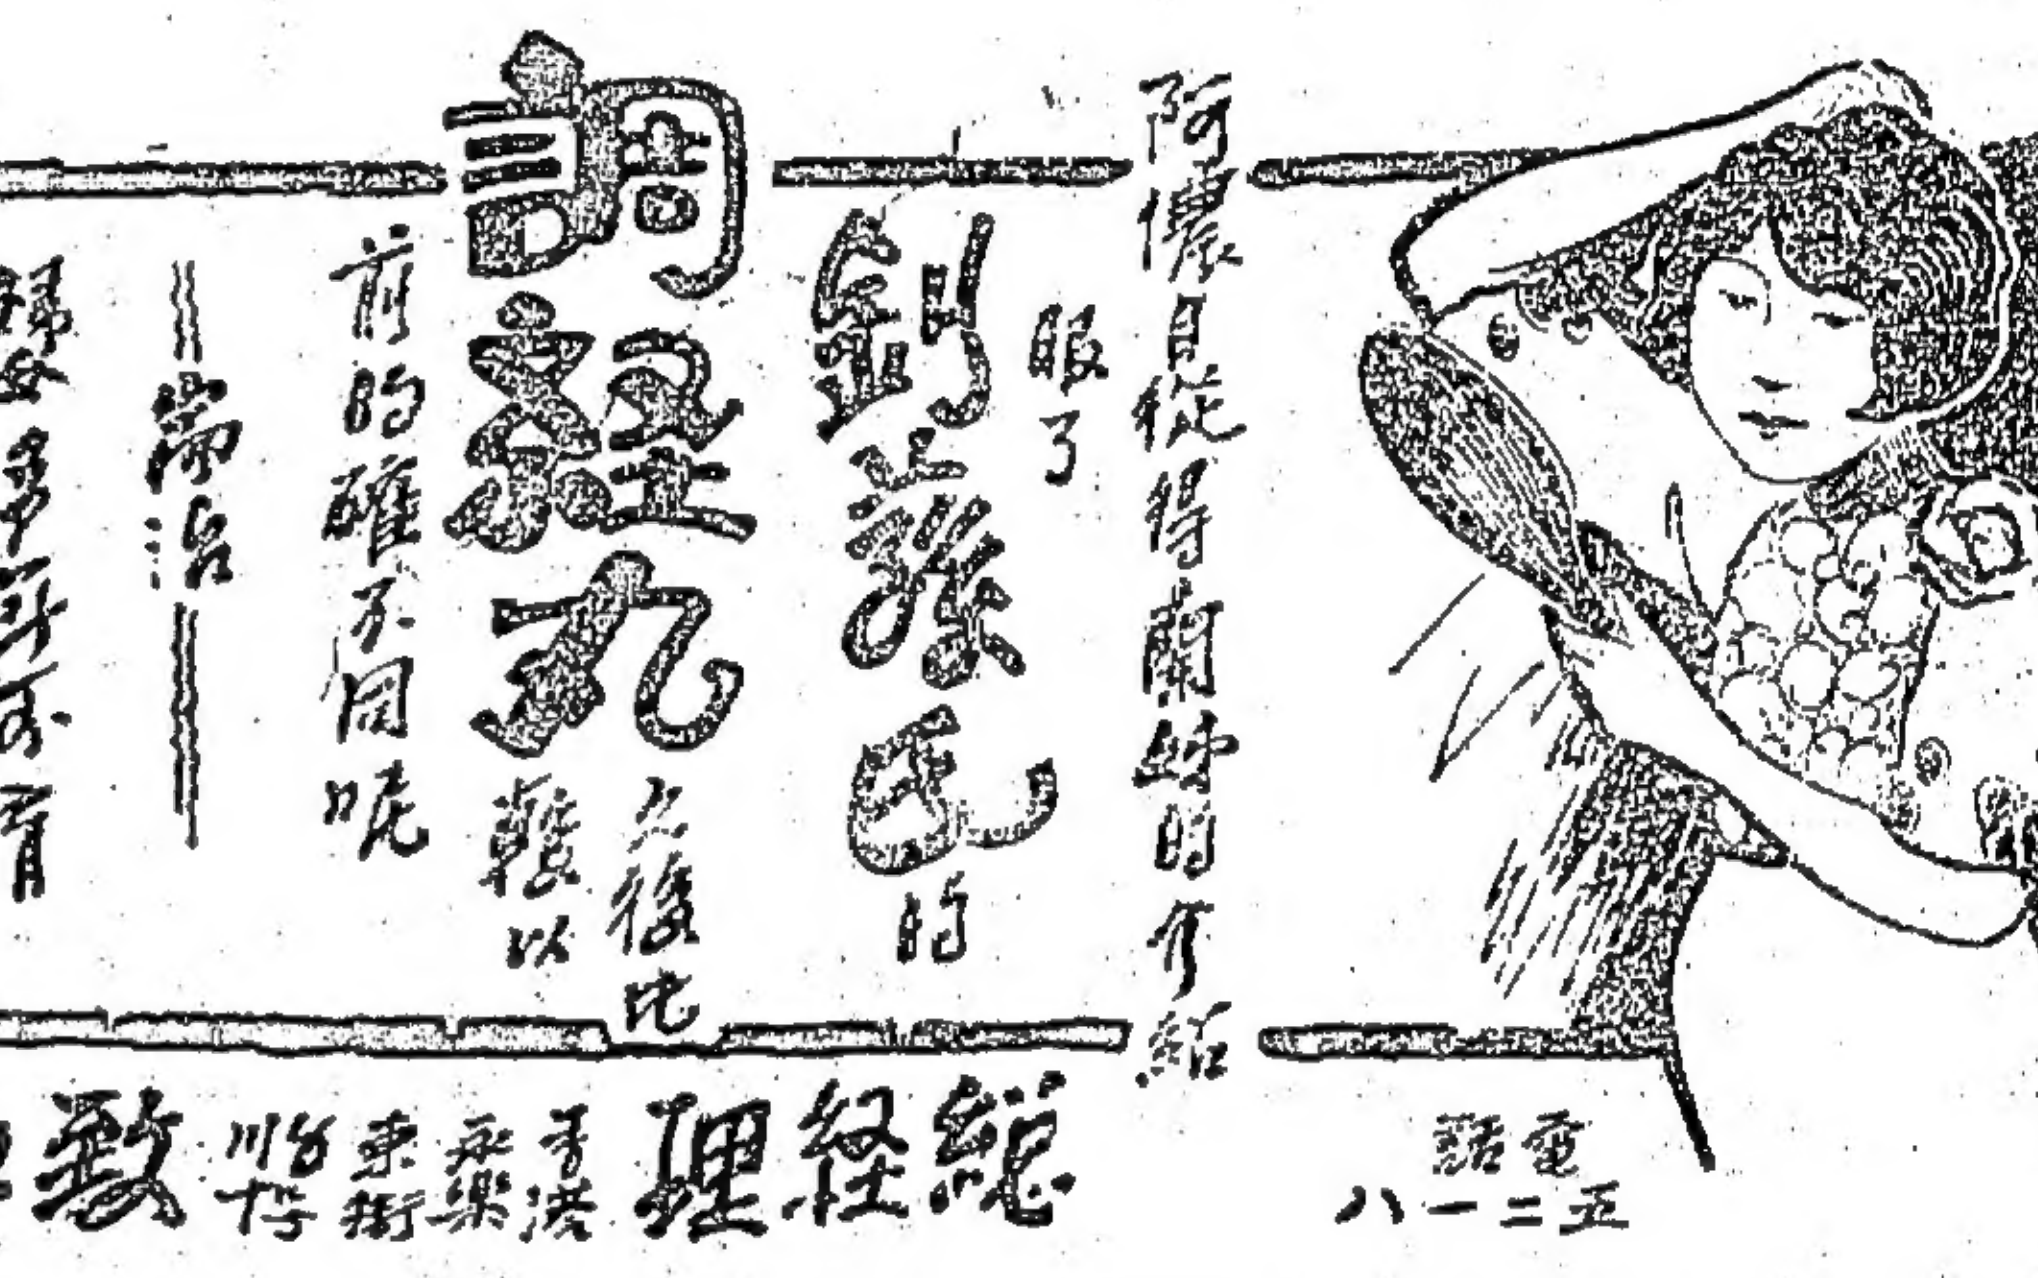 阿儂自從得蘭姊的介紹
服了
劉氏的
調經丸
之後比
較以
前的確不同呢
治
婦女多年育
電話
五二一八
總經理
香港
永樂
東街
致